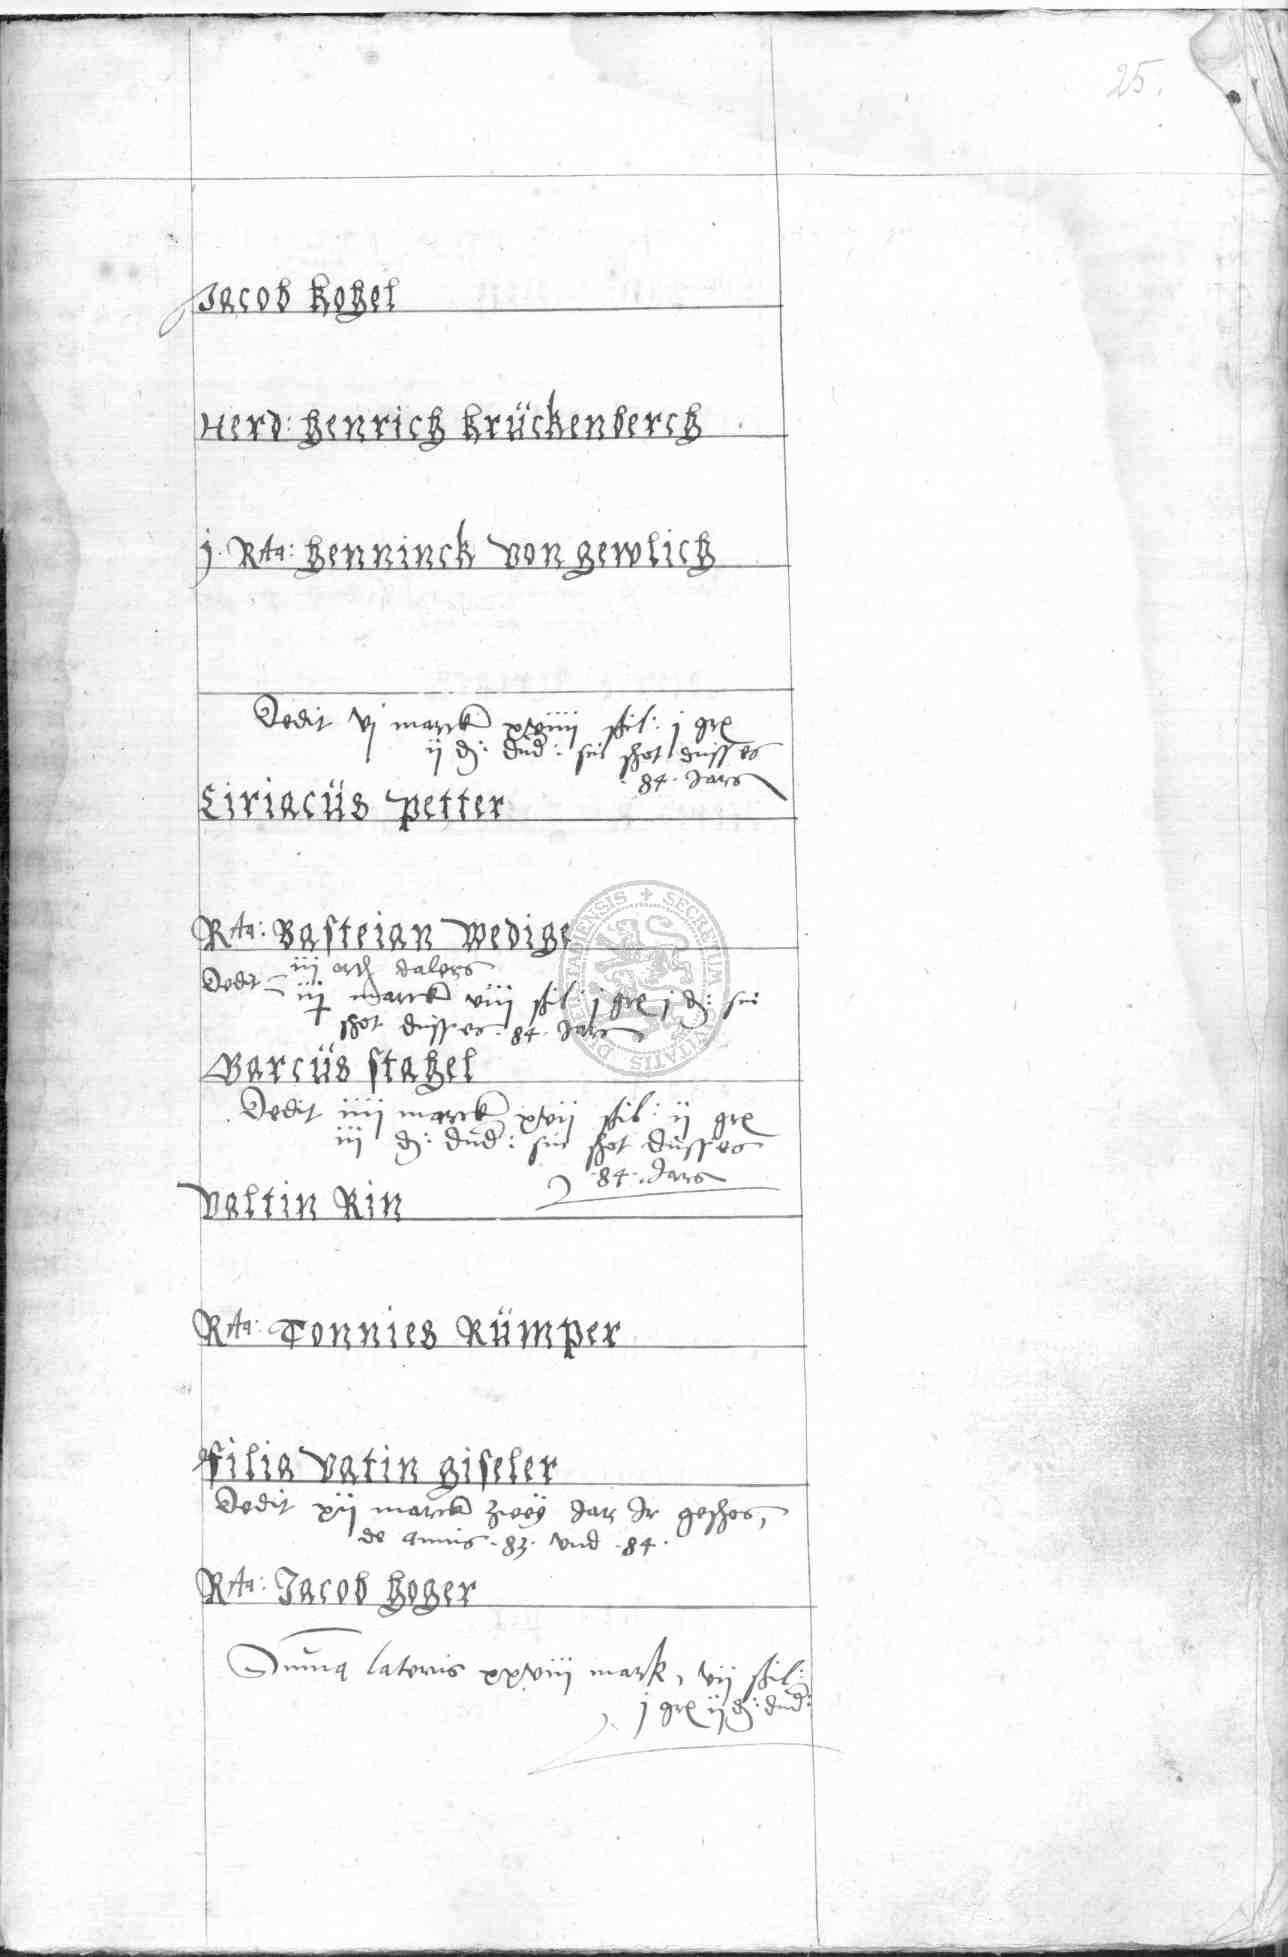 25.
Jacob Kogel
Herd: Henrich Krückenberch
j. Rta: Henninck von Gewlich
Dedit vj marck xviiij ßil: j gre
ij d: dnd: sin schot düsses
84. Jars
Ciriacüs Petter
Rta: Basteian Wedige
iij ort dalers
Dedit iij marck viij ßil: j gre j d: sin
schot düsses 84. Jars
Marcüs Stahel
Dedit iiij marck xvij ßil: ij gre
iij d: dnd: sin schot düsses
84. Jars
Valtin Rin
Rta: Tonnies Rümper
Filia Vatin Giseler
Dedit xij marck zwey Jar Jr geschos,
de annis. 83. vnd. 84.
Rta: Jacob Hoger
Suma lateris xxviij mark, vij ßil:
j gre ij d: dnd:
SECRETUM CIVITATIS